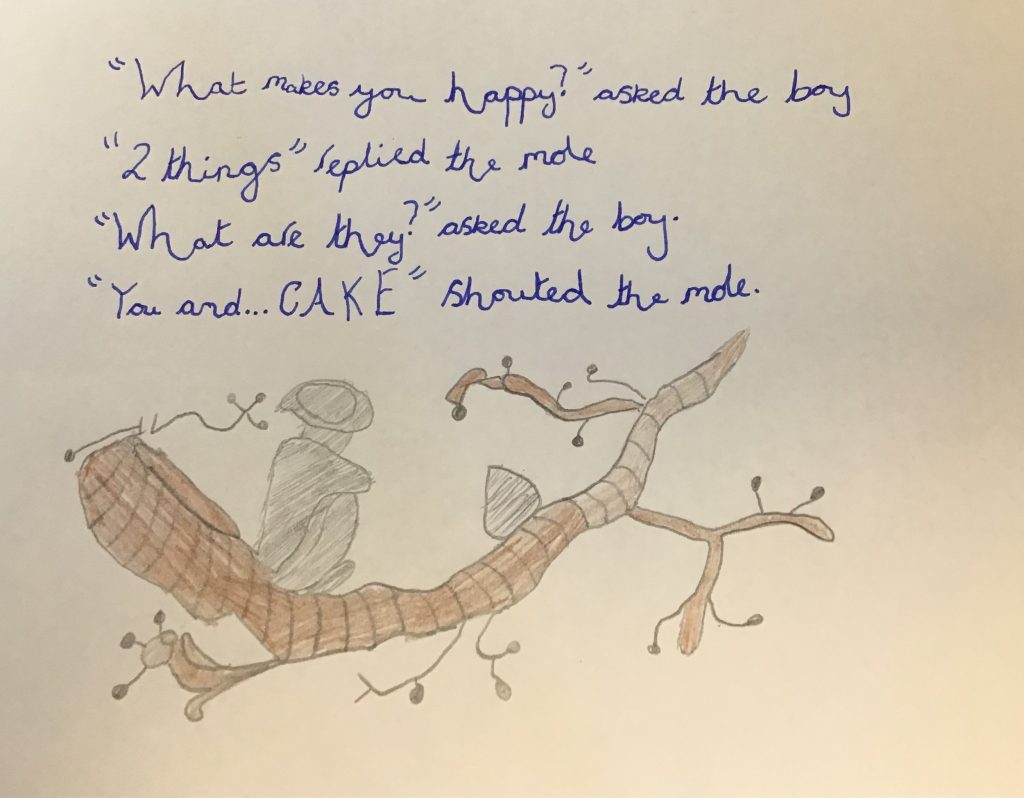 "What makes you happy?" asked the boy
"2 things" replied the mole
"What are they?" asked the boy.
"You and... CAKE" shouted the mole.